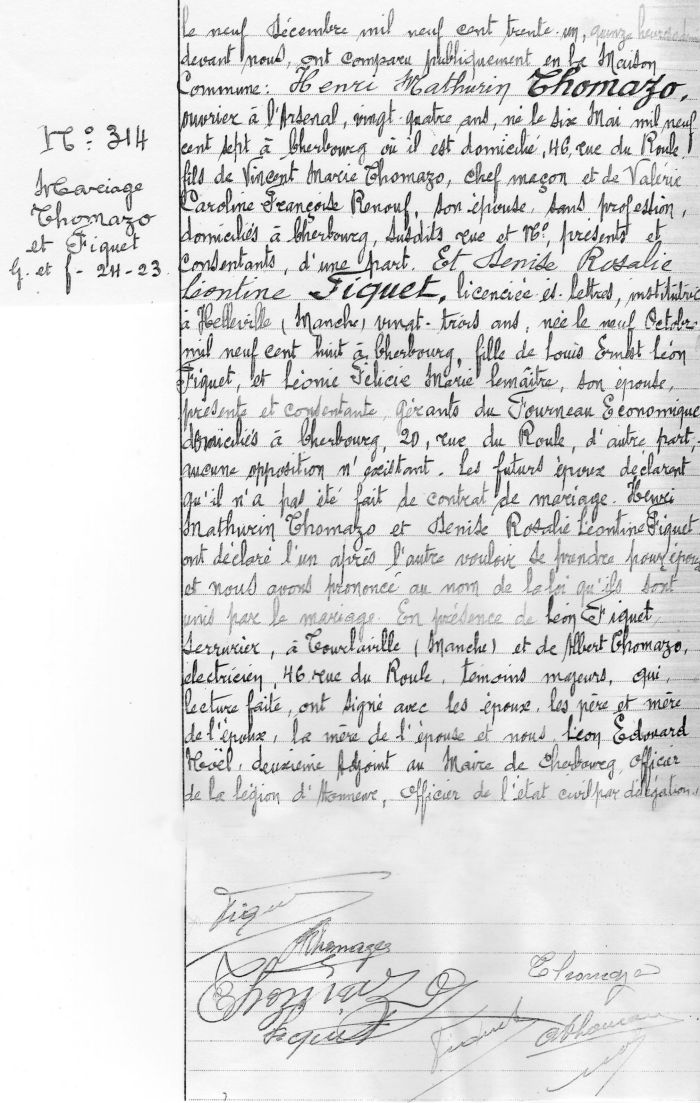 N° 314
Mariage
Thomazo
et Fiquet
G. et f - 24-23
le neuf Décembre mil neuf cent trente un, quinze heures
devant nous, ont comparu publiquement en la Maison
Commune: Henri Mathurin Thomazo,
ouvrier à l'Arsenal, vingt-quatre ans, né le six Mai mil neuf
cent sept à Cherbourg où il est domicilié, 46, rue du Roule,
fils de Vincent Marie Thomazo, chef maçon et de Valérie
Caroline Françoise Renouf, son épouse, sans profession,
domiciliés à Cherbourg, susdits rue et N°, présents et
consentants, d'une part. Et Denise Rosalie
Léontine Fiquet, licenciée ès-lettres, institutric
à Helleville (Manche) vingt-trois ans, née le neuf Octobre
mil neuf cent huit à Cherbourg, fille de Louis Ernest Léon
Fiquet, et Léonie Félicie Marie Lemaître, son épouse,
présente et consentante, gérants du Fourneau Economique
domiciliés à Cherbourg, 20, rue du Roule, d'autre part,
aucune opposition n'existant. Les futurs époux déclarent
qu'il n'a pas été fait de contrat de mariage. Henri
Mathurin Thomazo et Denise Rosalie Léontine Fiquet
ont déclaré l'un après l'autre vouloir se prendre pour époux
et nous avons prononcé au nom de la loi qu'ils sont
unis par le mariage. En présence de Léon Fiquet,
serrurier, à Tourlaville (Manche) et de Albert Thomazo,
électricien, 46, rue du Roule, témoins majeurs, qui,
lecture faite, ont signé avec les époux, les père et mère
de l'époux, la mère de l'épouse et nous, Léon Edouard
Noël, deuxième Adjoint au Maire de Cherbourg, Officier
de la légion d'Honneur, Officier de l'état civil par délégation.
Fiquet
Thomazo
Thomazo
Thomazo
Fiquet
Fiquet